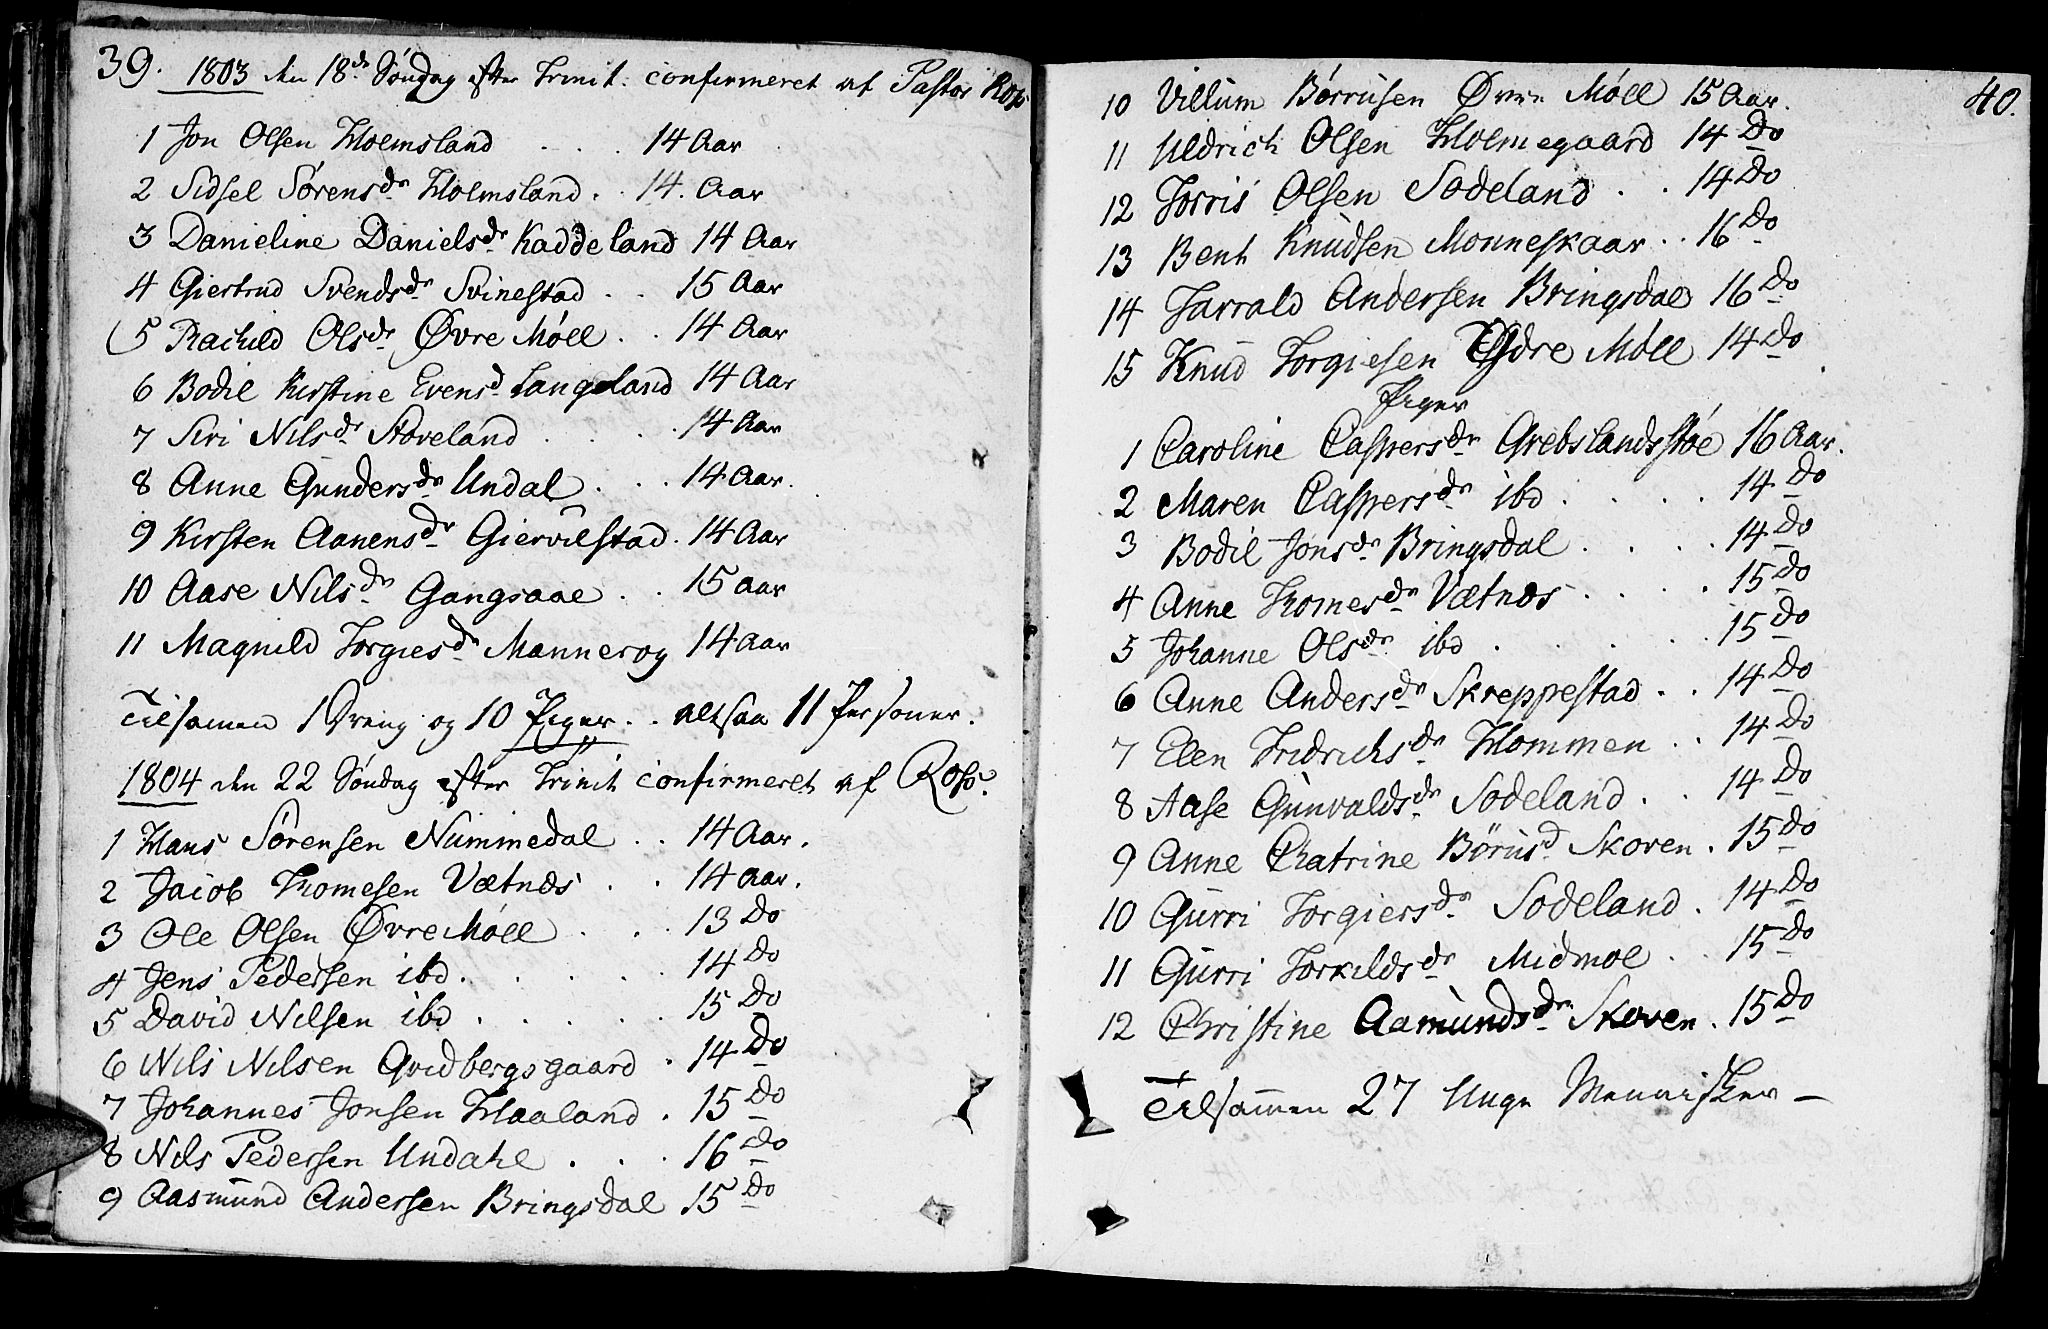 39. 1803 den 18de Søndag efter Trinit. confirmeret af Pastor Rosp
1 Jon Olsen Holmsland . . . 14 Aar
2 Sidsel Sørensdr Holmsland . . 14. Aar
3 Danieline Danielsdr Kaddeland 14 Aar
4 Giertrud Svendsdr Svinestad . . 15 Aar
5 Rachild Olsdr Øvre Møll . . 14 Aar
6 Bodil Kirstine Evensd Langeland 14 Aar
7 Siri Nilsdr Støveland . . . . 14 Aar
8 Anne Gundersdr Undal . . . 14 Aar.
9 Kirsten Aanensdr Giervilstad . 14 Aar
10 Aase Nilsdr Gangsaae . . 15 Aar
11 Magnild Torgiesdr Mannerog 14 Aar
Tilsamen 1 Dreng og 10 Piger . . altsaa 11 Personer.
1804 den 22 Søndag efter Trinit confirmeret af Rosp.
1 Hans Sørensen Nummedal . . 14 Aar.
2 Jacob Thomesen Vætnes . . 14 Aar.
3 Ole Olsen Øvre Møll . . . 13 Do
4 Jens Pedersen ibd . . . . . 14 Do
5 David Nilsen ibd . . . . . 15 Do
6 Nils Nilsen Qvidbergsgaard . 14 Do
7 Johannes Jonsen Haaland . 15 Do
8 Nils Pedersen Undahl . . . 16 Do
9 Aasmund Andersen Bringsdal 15 Do
40.
10 Villum Børrusen Øvre Møll 15 Aar.
11 Uldrich Olsen Holmegaard 14 Do
12 Torris Olsen Sodeland . . 14 Do
13 Bent Knudsen Monneskaar . . 16 Do
14 Tarrald Andersen Bringsdal 16 Do
15 Knud Torgiesen Ydre Møll 14 Do
Piger
1 Caroline Caspersdr Grebslandsstøe 16 Aar.
2 Maren Caspersdr ibd . . . . 14 Do
3 Bodil Jonsdr Bringsdal . . . . 14 Do
4 Anne Thomesdr Vætnes . . . . 15 Do
5 Johanne Olsdr ibd . . . . . 15 Do
6 Anne Andersdr Skreppestad . . 14 Do
7 Elen Fridrichsdr Hommen . . 14 Do
8 Aase Gunvaldsdr Sodeland . . 14 Do
9 Anne Chatrine Børusd Skoven . 15 Do
10 Gurri Torgiersdr Sodeland . 14 Do
11 Gurri Torkildsdr Midmoe . . 15 Do
12 Christine Aamundsdr Skoven . 15 Do
Tilsammen 27 Unge Mennisker –